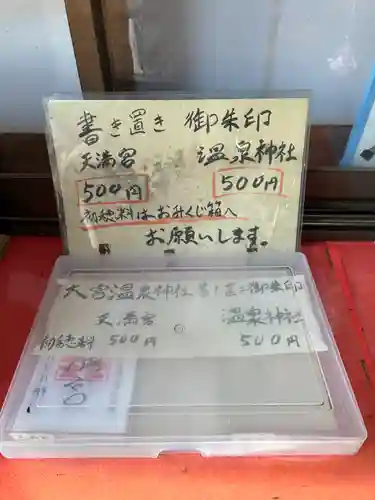 書き置き 御朱印
天満宮 温泉神社
500円 500円
初穂料は、おみくじ箱へ
お願いします。
大宮温泉神社 書き置き御朱印
天満宮 温泉神社
初穂料 500円 500円